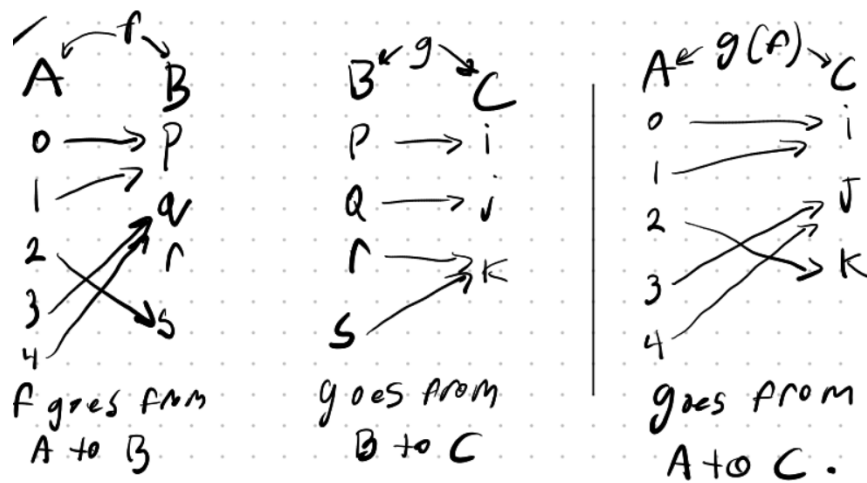 f
A B
0 p
1
q
2 r
3 s
4
f goes from
A to B
g
B C
p i
Q j
r k
s
goes from
B to C
g(f)
A C
0 i
1
2 J
3 k
4
goes from
A to C.